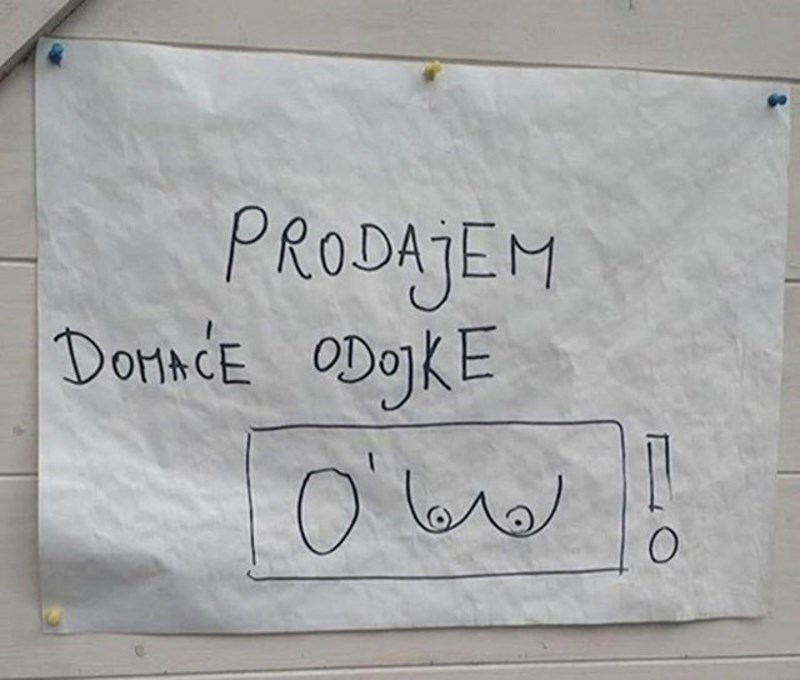 PRODAJEM
DOMAĆE ODOJKE
O' !